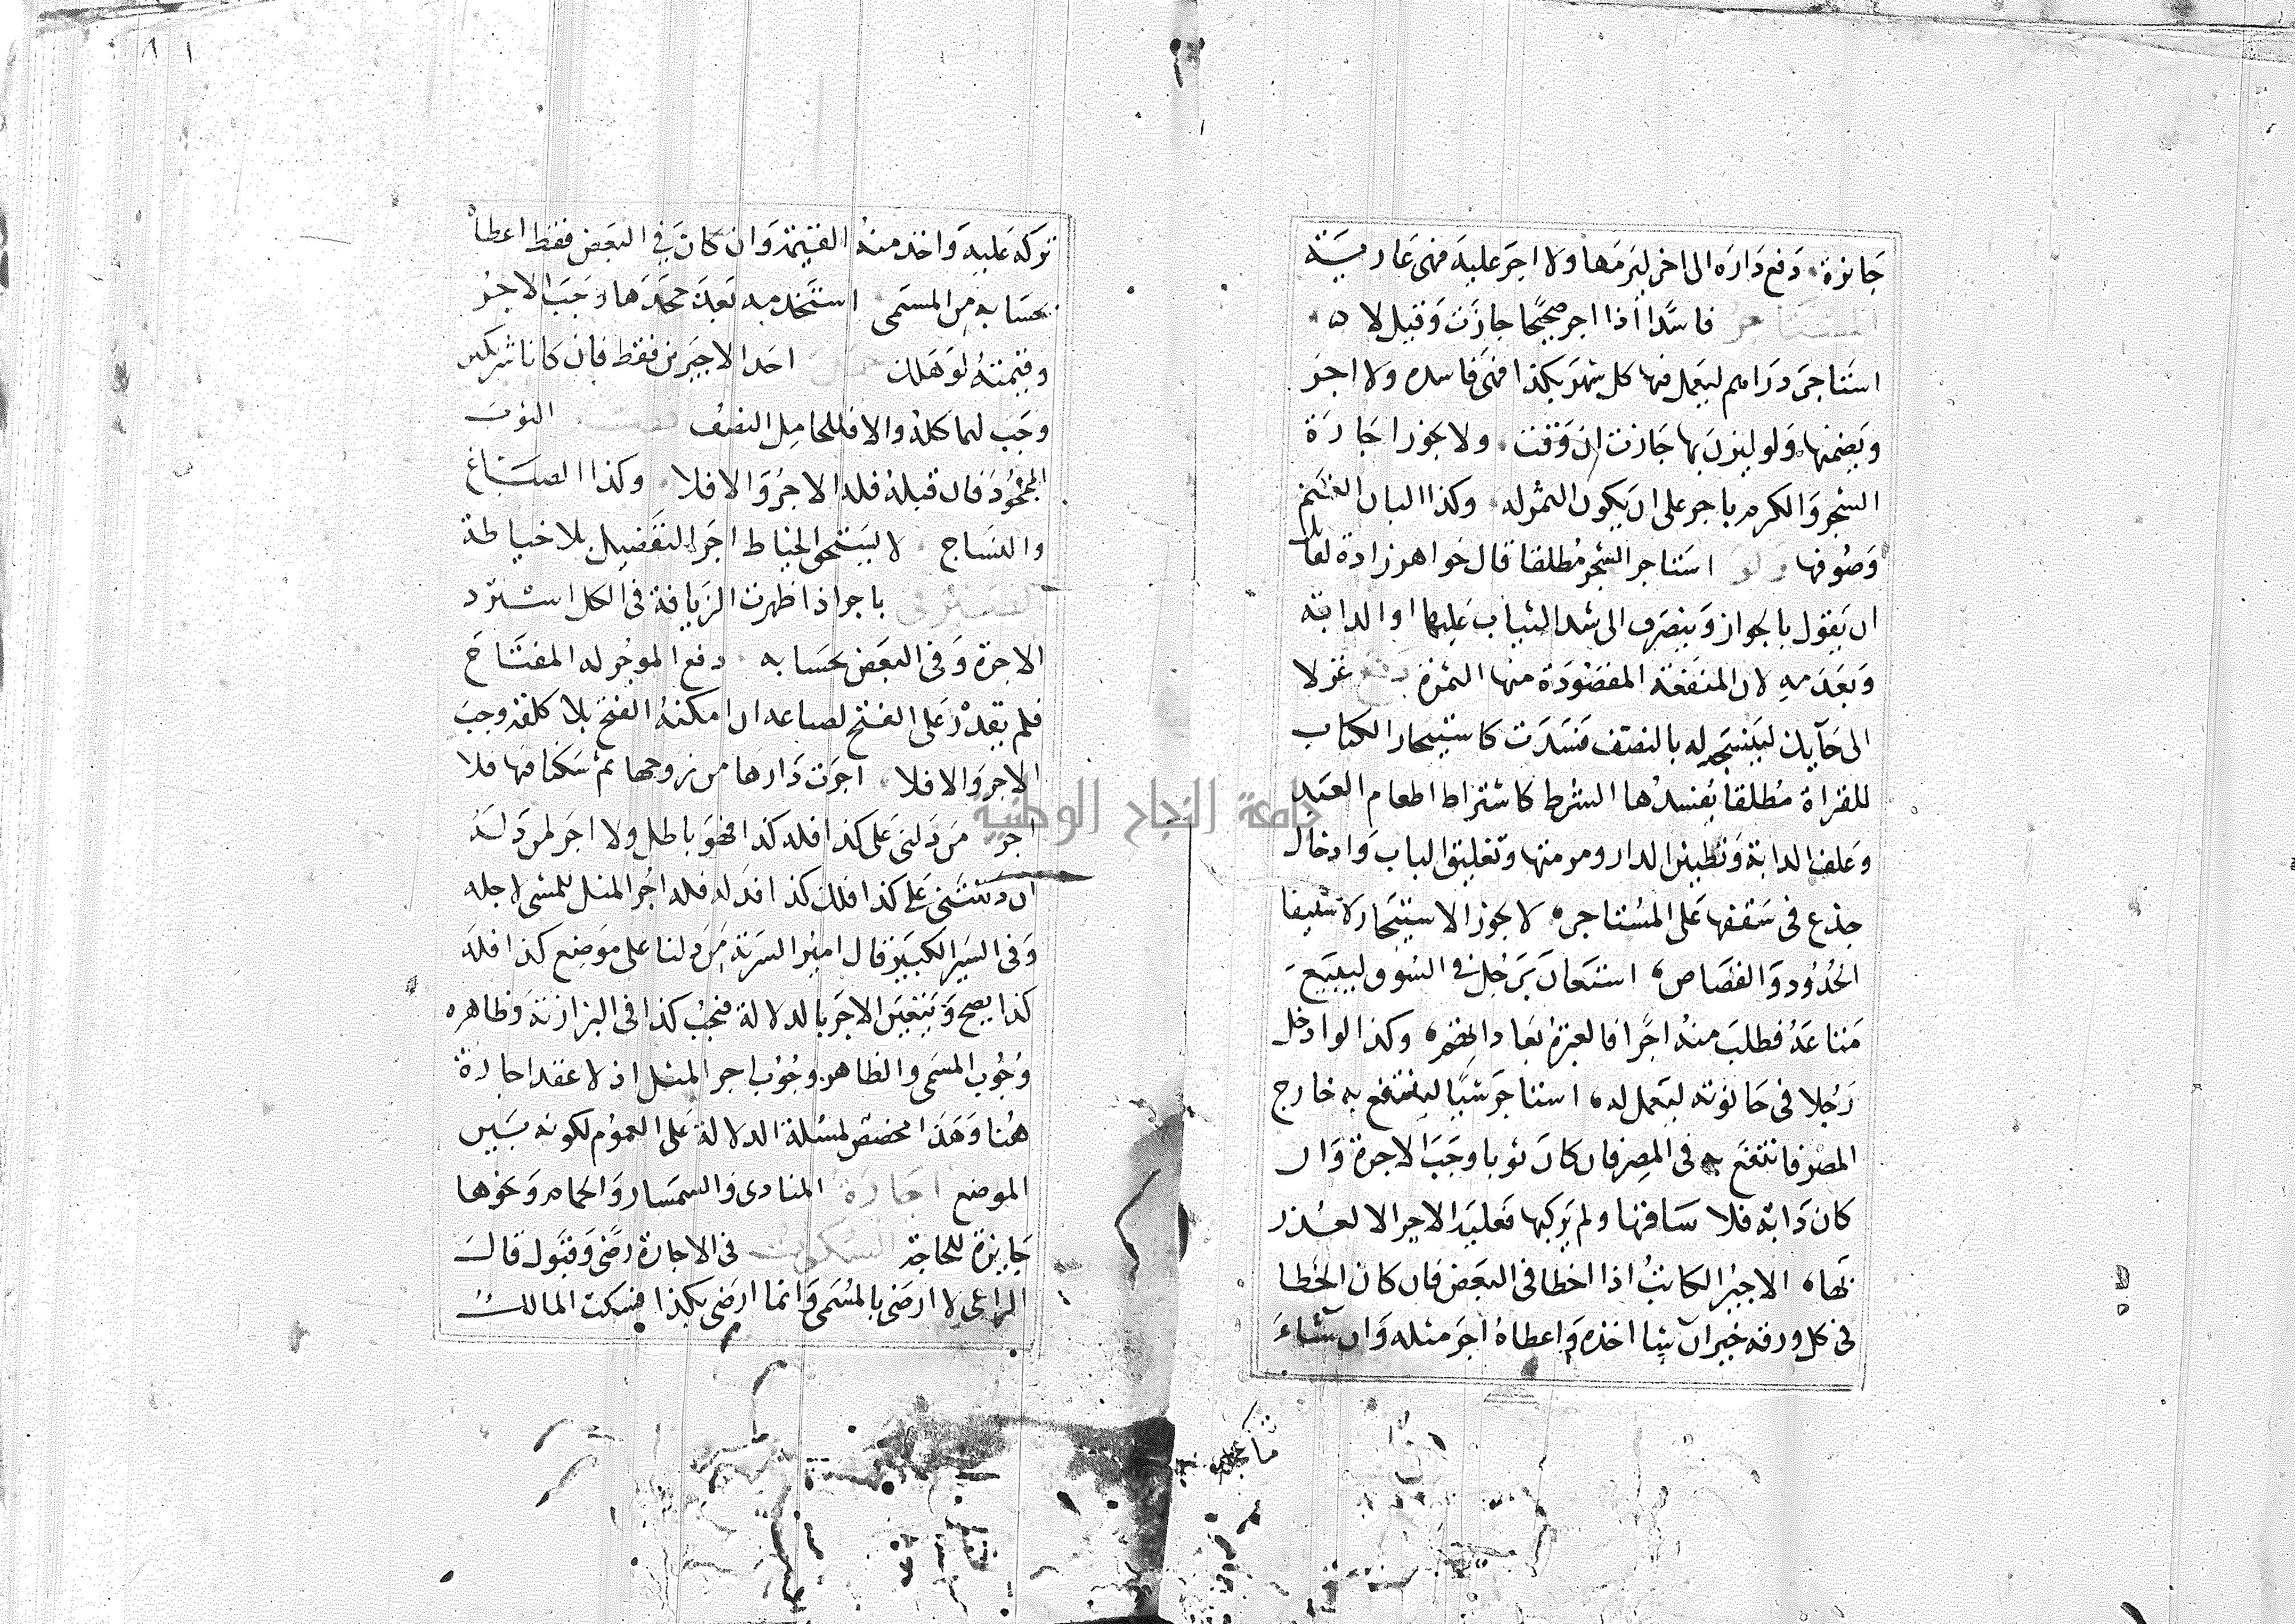 جائزة دفع داره الى اخر ليرمها ولا اجر عليه فهى عارية
المستاجر فاسدا اذا اجر صحيحا جازت وقيل لا
استاجر دراهم ليعمل فيها كل شهر بكذا فهى فاسده ولا اجر
ويضمنها ولو ليزن بها جازت ان وقت ولا يجوز اجارة
الشجر والكرم باجر على ان يكون الثمر له وكذا البان الغنم
وصوفها ولو استاجر الشجر مطلقا قال خواهر زادة لقائل
ان يقول بالجواز وينصرف الى شد الثياب عليها او الدابة
وبعدمه لان المنفعة المقصودة منها الثمرة دفع غزلا
الى حايك لينسجه له بالنصف فسدت كاستيجار الكتاب
للقراة مطلقا يفسدها الشرط كاشتراط اطعام العبد
وعلف الدابة وتطيين الدار ومرمتها وتعليق الباب وادخال
جذع فى سقفها على المستاجر لا يجوز الاستيجار لاستيفا
الحدود والقصاص استعان برجل فى السوق ليبيع
متاعه فطلب منه اجرا فالعبرة بعادتهم وكذا لو ادخل
رجلا فى حانوته ليعمل له استاجر شيا لينتفع به خارج
المصر فانتفع به فى المصر فان كان ثوبا وجب الاجرة وان
كان دابة فلا ساقها ولم يركبها فعليه الاجر الا لعذر
بها الاجير الكاتب اذا اخطا فى البعض فان كان الخطا
فى كل ورقة خير ان شا اخذه واعطاه اجر مثله وان شاء
تركه عليه واخذ منه القيمة وان كان فى البعض فقط اعطاه
بحسابه من المسمى استخدمه بعد جحدها وجب الاجر
وقيمته لو هلك احد الاجيرين فقط فان كانا شريكين
وجب لهما كله والا فللحامل النصف الثوب
المجحود فان قبله فله الاجر والا فلا وكذا الصباغ
والنساج لا يستحق الخياط اجر التفصيل بلا خياطة
الصيرفى باجر اذا ظهرت الزيافة فى الكل استرد
الاجرة وفى البعض بحسابه دفع الموجر له المفتاح
فلم يقدر على الفتح لضياعه ان امكنه الفتح بلا كلفة وجب
الاجر والا فلا اجرت دارها من زوجها ثم سكنا فيها فلا
اجر من دلنى على كذا فله كذا فهو باطل ولا اجر لمن دله
ان دللتنى على كذا فلك كذا فدله فله اجر المثل للمشى لاجله
وفى السير الكبير قال امير السرية من دلنا على موضع كذا فله
كذا يصح ويتعين الاجر بالدلالة فيجب كذا فى البزازية وظاهره
وجوب المسمى والظاهر وجوب اجر المثل اذ لا عقد اجارة
هنا وهذا مخصص لمسئلة الدلالة على العموم لكونه بين
الموضع اجارة المنادى والسمسار والحمام ونحوها
جايزة للحاجة السكوت فى الاجارة رضى وقبول قال
الراعى لا ارضى بالمسمى وانما ارضى بكذا فسكت المالك
جامعة النجاح الوطنية